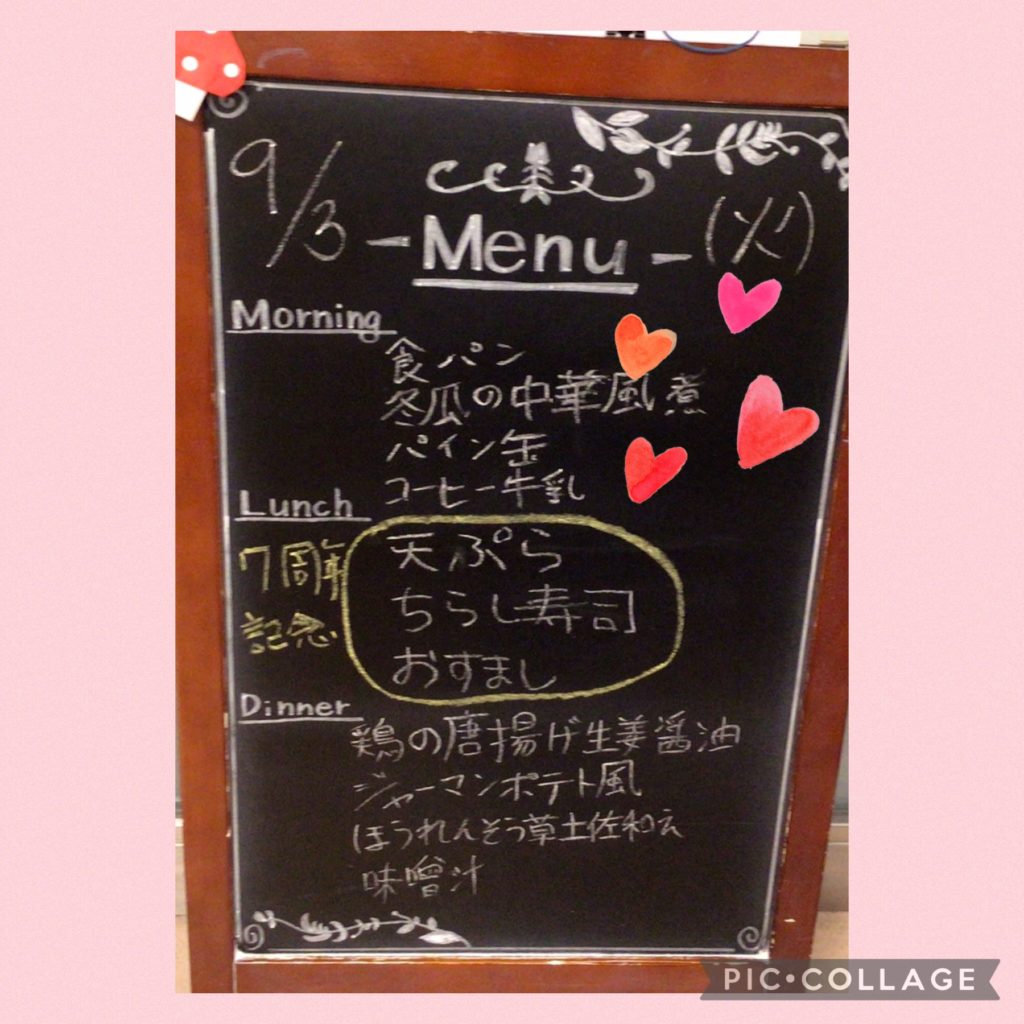 9/3 - Menu - (火)
Morning
食パン
冬瓜の中華風煮
パイン缶
コーヒー牛乳
Lunch
7周年
記念
天ぷら
ちらし寿司
おすまし
Dinner
鶏の唐揚げ生姜醤油
ジャーマンポテト風
ほうれんそう草土佐和え
味噌汁
PIC•COLLAGE